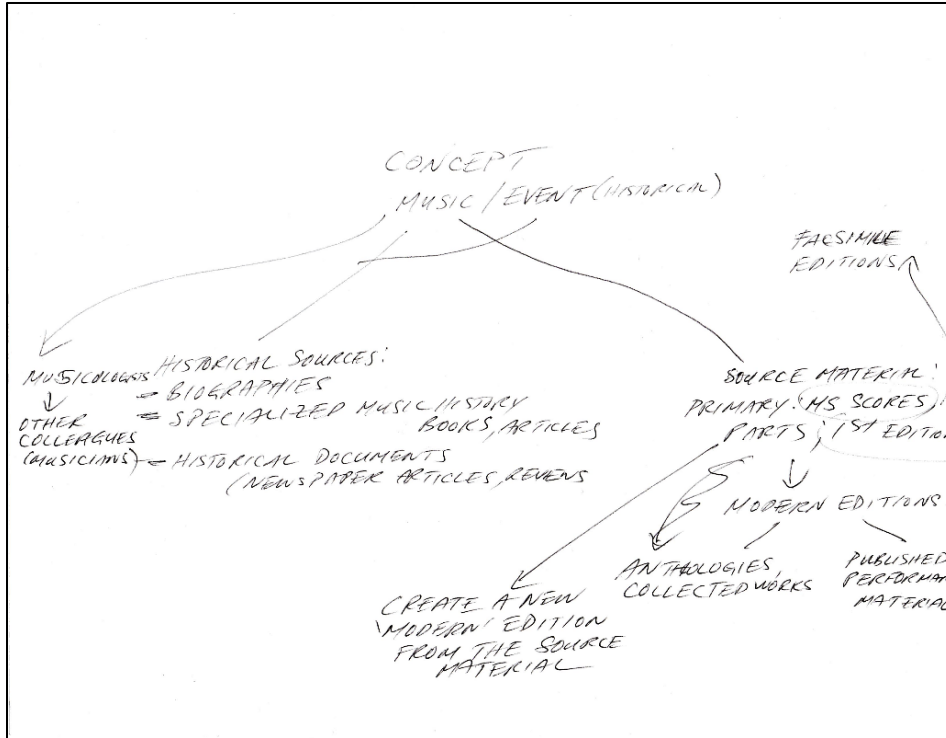 CONCEPT
MUSIC / EVENT (HISTORICAL)
FACSIMILE
EDITIONS
MUSICOLOGISTS
OTHER
COLLEAGUES
(MUSICIANS)
HISTORICAL SOURCES:
- BIOGRAPHIES
- SPECIALIZED MUSIC HISTORY
BOOKS, ARTICLES
- HISTORICAL DOCUMENTS
(NEWSPAPER ARTICLES, REVIEWS
SOURCE MATERIAL:
PRIMARY: MS SCORES,
PARTS; 1ST EDITION
MODERN EDITIONS
ANTHOLOGIES,
COLLECTED WORKS
PUBLISHED
PERFORMAN
MATERIAL
CREATE A NEW
'MODERN' EDITION
FROM THE SOURCE
MATERIAL